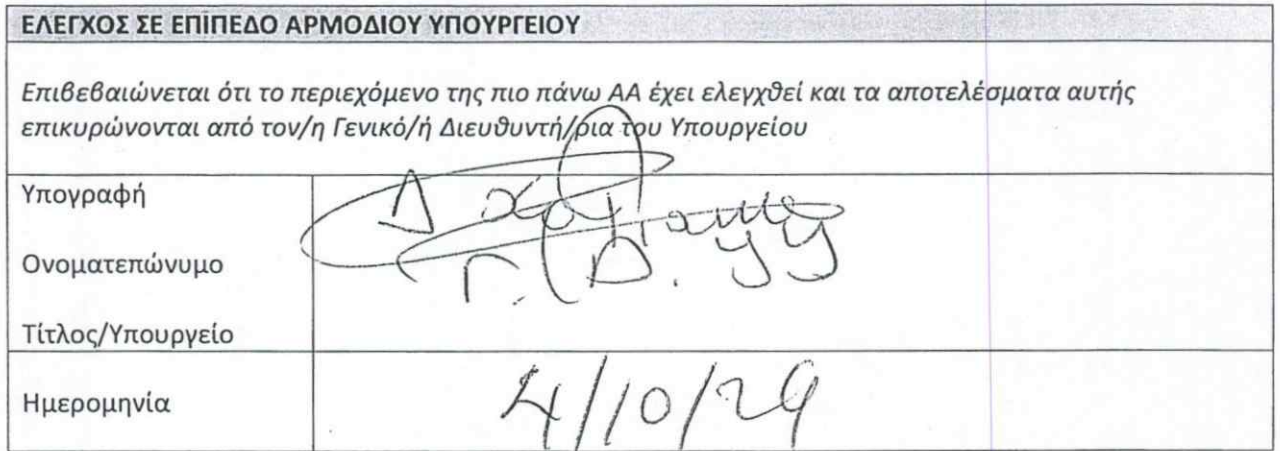 ΕΛΕΓΧΟΣ ΣΕ ΕΠΙΠΕΔΟ ΑΡΜΟΔΙΟΥ ΥΠΟΥΡΓΕΙΟΥ
Επιβεβαιώνεται ότι το περιεχόμενο της πιο πάνω ΑΑ έχει ελεγχθεί και τα αποτελέσματα αυτής
επικυρώνονται από τον/η Γενικό/ή Διευθυντή/ρια του Υπουργείου
Υπογραφή
Ονοματεπώνυμο
Γ. Δ. ΥΥ
Τίτλος/Υπουργείο
Ημερομηνία